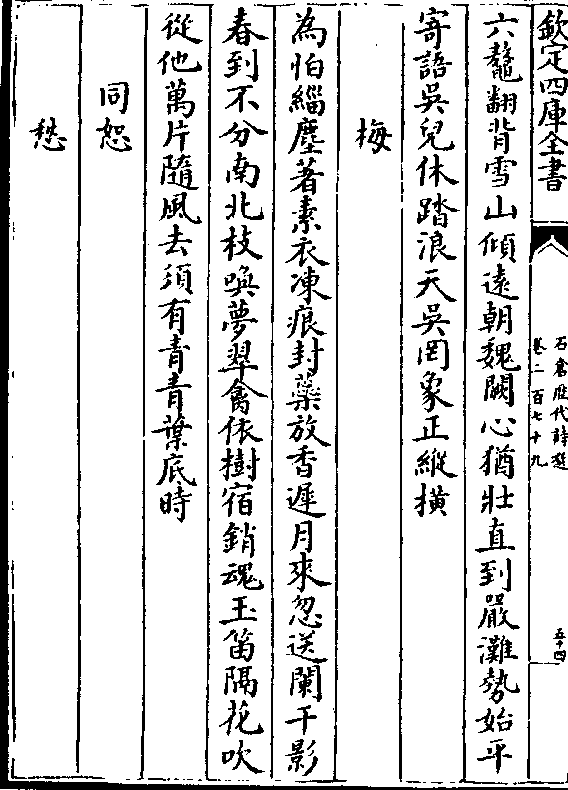 欽定四庫全書
石倉歷代詩選
卷二百七十九
五十四
六鼇翻背雪山傾遠朝魏闕心猶壯直到嚴灘勢始平
寄語吳兒休踏浪天吳罔象正縱橫
梅
為怕緇塵著素衣凍痕封蘂放香遲月來忽送闌干影
春到不分南北枝喚夢翠禽依樹宿銷魂玉笛隔花吹
從他萬片隨風去須有青青葉底時
同恕
愁